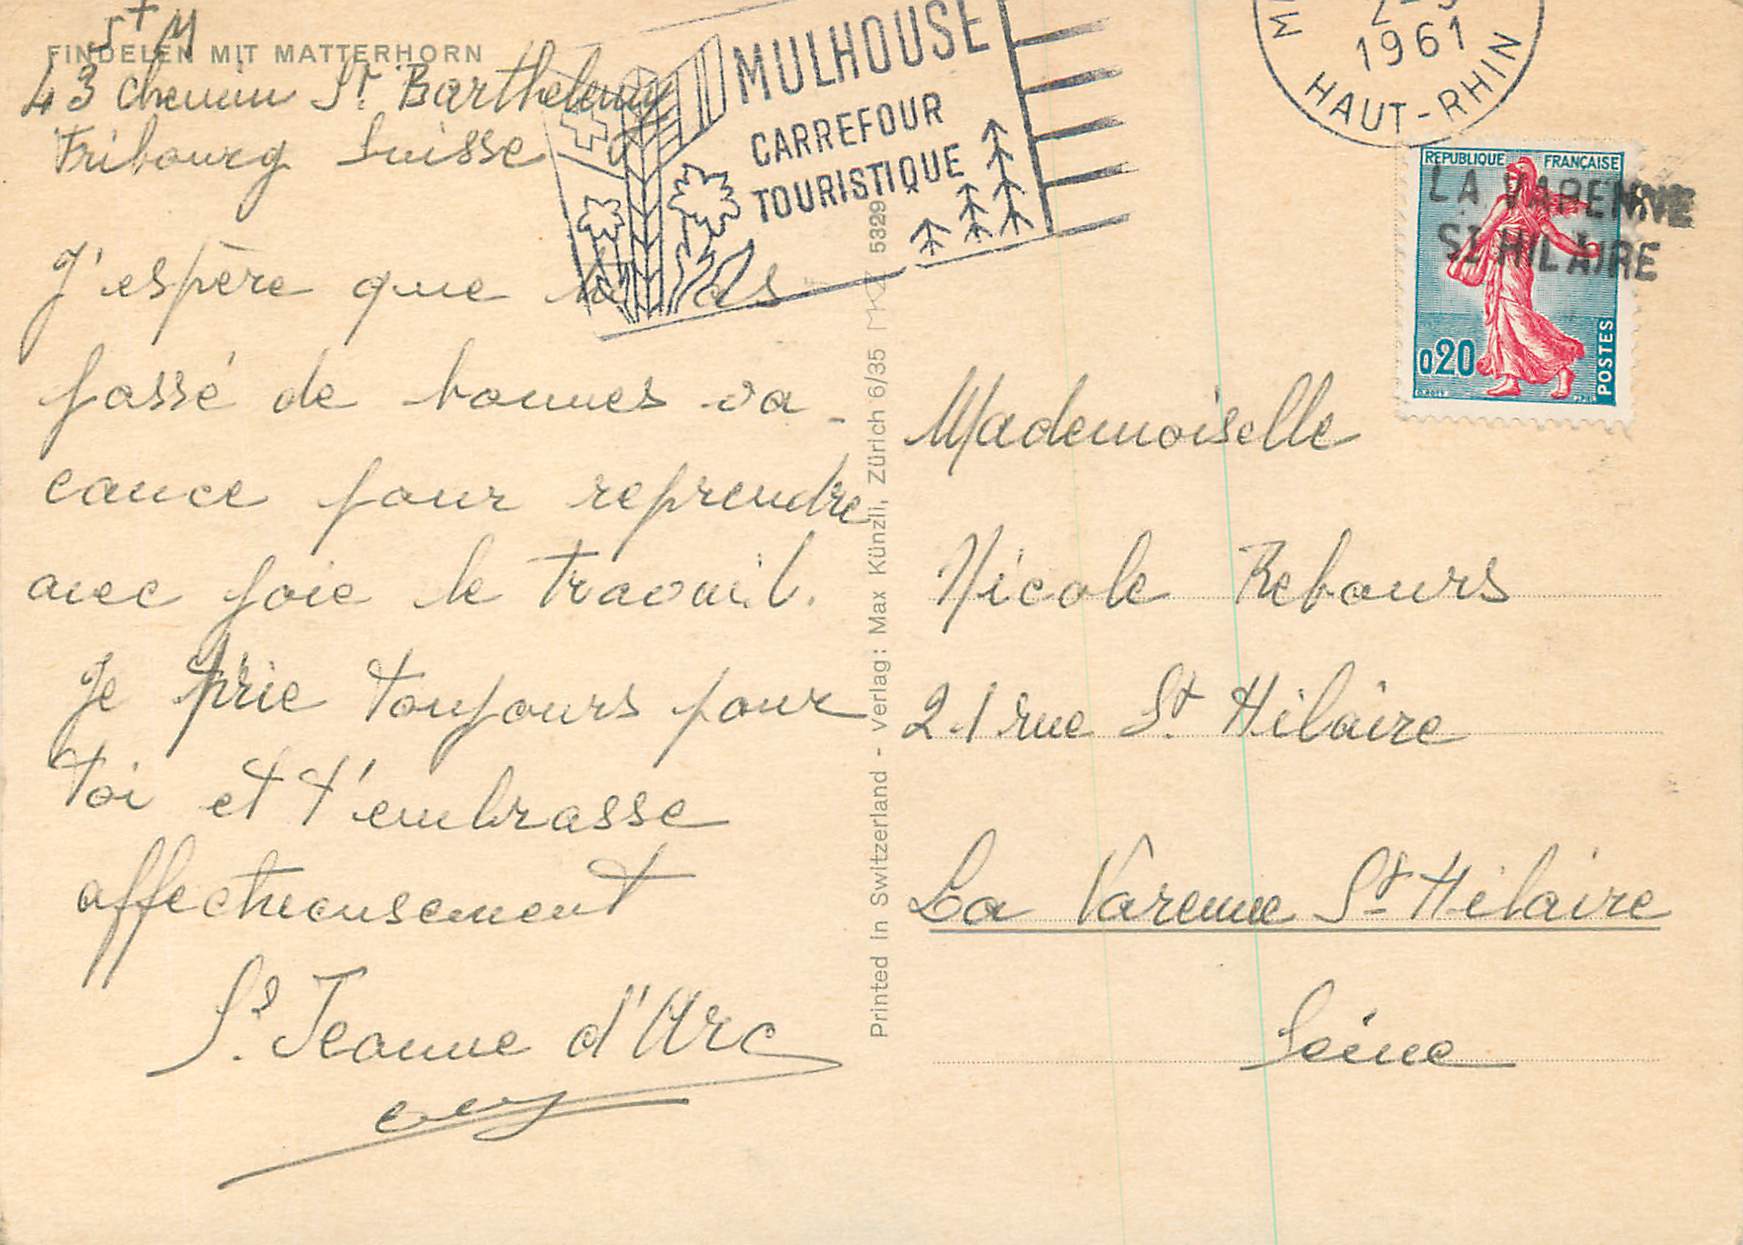 St M
FINDELEN MIT MATTERHORN
43 chemin St. Barthelemy
Fribourg Suisse
J'espère que tu as
passé de bonnes va-
cance pour reprendre
avec joie le travail.
Je prie toujours pour
toi et t'embrasse
affectueusement
Sr. Jeanne d'Arc
MULHOUSE
CARREFOUR
TOURISTIQUE
1961
HAUT-RHIN
REPUBLIQUE FRANÇAISE
0,20
POSTES
LA VARENNE
ST HILAIRE
Printed in Switzerland - Verlag: Max Künzli, Zürich 6/35 5329
Mademoiselle
Nicole Rebours
21 rue St. Hilaire
La Varenne St-Hilaire
Seine